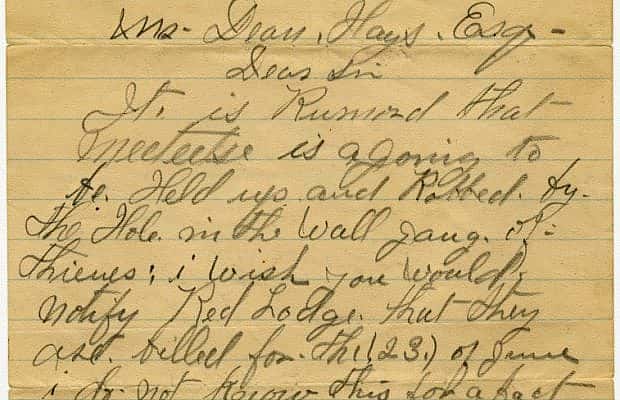 Mr- Dean. Hays. Esq-
Dear Sir
It. is Rumord that
Meeteetse is agoing to
be. Held up and Robbed. by-
the Hole. in the Wall gang. of-
thieves; i wish you would;
notify Red Lodge. that they
are. billed for. the (23.) of June
i do not know this for a fact